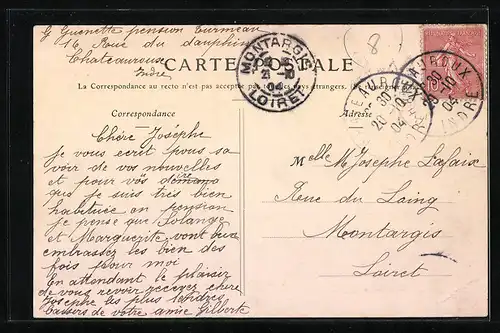 G Guenette pension Turmeau
16 Rue du dauphin
Chateauroux
Indre
8
MONTARGIS
21-10
04
LOIRET
CARTE POSTALE
La Correspondance au recto n'est pas acceptée par tous les pays étrangers.
Correspondance
Adresse
CHATEAUROUX
30
20-10
04
INDRE
CHATEAUROUX
30
20-10
04
INDRE
Chère Josephe
Je vous ecrit pour sa
voir de vos nouvelles
et pour vous
que je suis très bien
habituée en pension
je pense que Solange
et Marguerite vont bien
embrassez les bien des
fois pour moi
En attendant le plaisir
de vous revoir recevez chère
Josephe les plus tendres
baisers de votre amie Gilberte
Melle M Josephe Lafaix
Rue du Loing
Montargis
Loiret